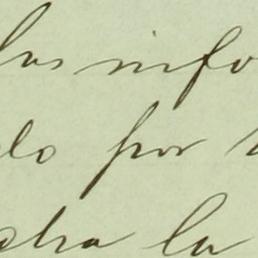 las info
do por
dra la